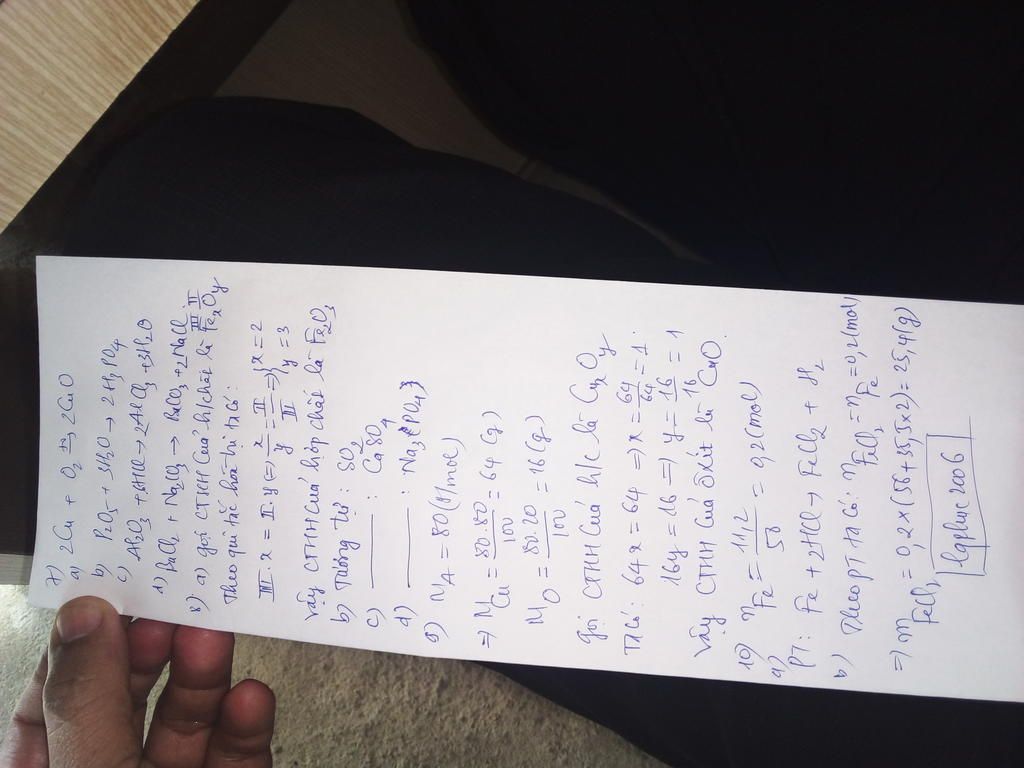 7)
a) 2Cu + O2 ⇌ 2CuO
b) P2O5 + 3H2O → 2H3PO4
c) Al2O3 + 6HCl → 2AlCl3 + 3H2O
d) BaCl2 + Na2CO3 → BaCO3 + 2NaCl
8) a) gọi CTHH của h/chất là FexOy
Theo qui tắc hóa trị ta có:
III.x = II.y => x/y = II/III => { x = 2 y = 3
Vậy CTHH của hợp chất là Fe2O3
b) Tương tự : SO2
c) ——— : CaSO4
d) ——— : Na3(PO4)
9) MA = 80 (g/mol)
=> MCu = 80.80/100 = 64 (g)
MO = 80.20/100 = 16 (g)
gọi CTHH của h/c là CuxOy
Ta có: 64x = 64 => x = 64/64 = 1.
16y = 16 => y = 16/16 = 1
Vậy CTHH của Oxit là CuO.
10) nFe = 11,2/56 = 0,2 (mol)
a)
PT: Fe + 2HCl → FeCl2 + H2
b) Theo PT ta có: nFeCl2 = nFe = 0,2 (mol)
=> mFeCl2 = 0,2 x (56 + 35,5x2) = 25,4 (g)
lqphuc2006